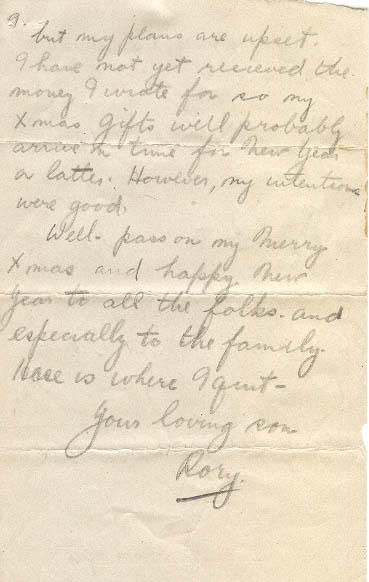 9.
but my plans are upset.
I have not yet recieved the
money I wrote for so my
Xmas gifts will probably
arrive in time for New Year
or latter. However, my intentions
were good.
Well - pass on my Merry
Xmas and happy New
Year to all the folks - and
especially to the family.
Here is where I quit -
Your loving son
Rory.